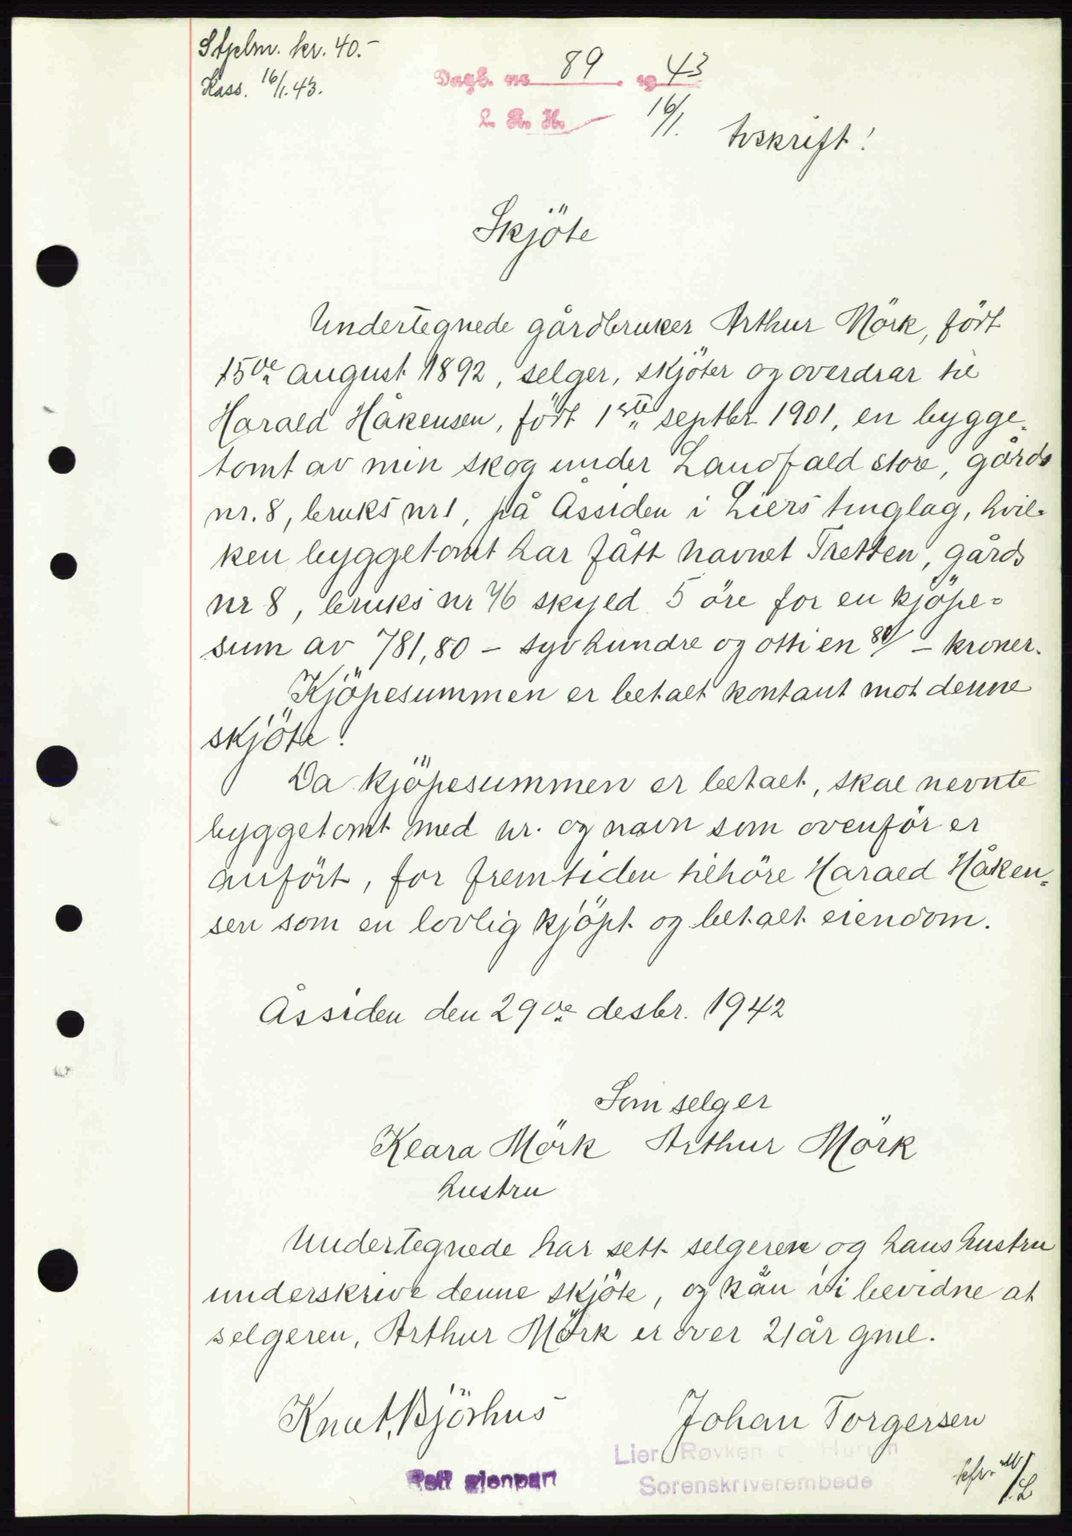 Stplm. kr. 40.-
Kass. 16/1. 43.
Dagb. nr 89 . 19 43
L. R. H. 16/1.
Avskrift!
Skjöte
Undertegnede gårdbruker Arthur Mörk, födt
15de august 1892, selger, skjöter og overdrar til
Harald Håkensen, födt 1ste septbr 1901, en bygge-
tomt av min skog under Landfald store, gårds
nr. 8, bruks nr 1, på Åssiden i Liers tinglag, hvil-
ken byggetomt har fått navnet Tretten, gårds
nr 8, bruks nr 76 skyld 5 öre for en kjöpe-
sum av 781,80 - syvhundre og ottien 80/ - kroner.
Kjöpesummen er betalt kontant mot denne
skjöte.
Da kjöpesummen er betalt, skal nevnte
byggetomt med nr. og navn som ovenför er
anfört, for fremtiden tilhöre Harald Håken-
sen som en lovlig kjöpt og betalt eiendom.
Åssiden den 29de desbr. 1942
Som selger
Klara Mörk Arthur Mörk
hustru
Undertegnede har sett selgeren og hans hustru
underskrive denne skjöte, og kan vi bevidne at
selgeren, Arthur Mörk er over 21 år gml.
Knut Björhus Johan Torgersen
Lier, Røyken og Hurum
Rett gjenpart Sorenskriverembede
kfr.